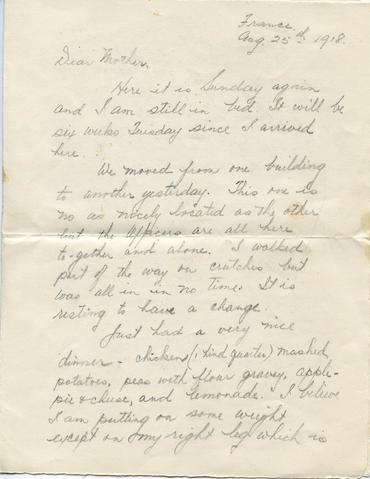 France.
Aug. 25th 1918.
Dear Mother,
Here it is Sunday again
and I am still in bed. It will be
six weeks Tuesday since I arrived
here.
We moved from one building
to another yesterday. This one is
no as nicely located as the other
but the officers are all here
to-gether and alone. I walked
part of the way on crutches but
was all in in no time. It is
resting to have a change.
Just had a very nice
dinner - chicken (1 hind quarter) mashed
potatoes, peas with flour gravy, apple-
pie & cheese, and lemonade. I believe
I am putting on some weight
except on my right leg which is